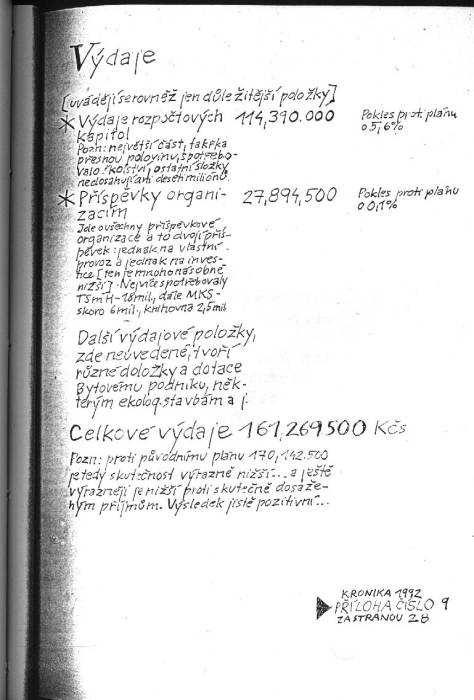 Výdaje
[uvádějí se rovněž jen důležitější položky]
* Výdaje rozpočtových 114,390.000 Pokles proti plánu
kapitol o 5,6%
Pozn: největší část, takřka
přesnou polovinu, spotřebo-
valo školství, ostatní složky
nedosahují ani deseti milionů.
* Příspěvky organi- 27,894,500 Pokles proti plánu
zacím o 0,1%
Jde o všechny příspěvkové
organizace a to dvojí přís-
pěvek: jednak na vlastní
provoz a jednak na inves-
tice [ten je mnohonásobně
nižší]. Nejvíce spotřebovaly
TSmH-18mil, dále MKS-
skoro 6mil., knihovna 2,5mil
Další výdajové položky,
zde neuvedené, tvoří
různé doložky a dotace
Bytovému podniku, něk-
terým ekolog. stavbám a j.
Celkové výdaje 161,269500 Kčs
Pozn: proti původnímu plánu 170,142.500
je tedy skutečnost výrazně nižší... a ještě
výrazněji je nižší proti skutečně dosaže-
ným příjmům. Výsledek jistě pozitivní...
KRONIKA 1992
PŘÍLOHA ČÍSLO 9
ZA STRANOU 28